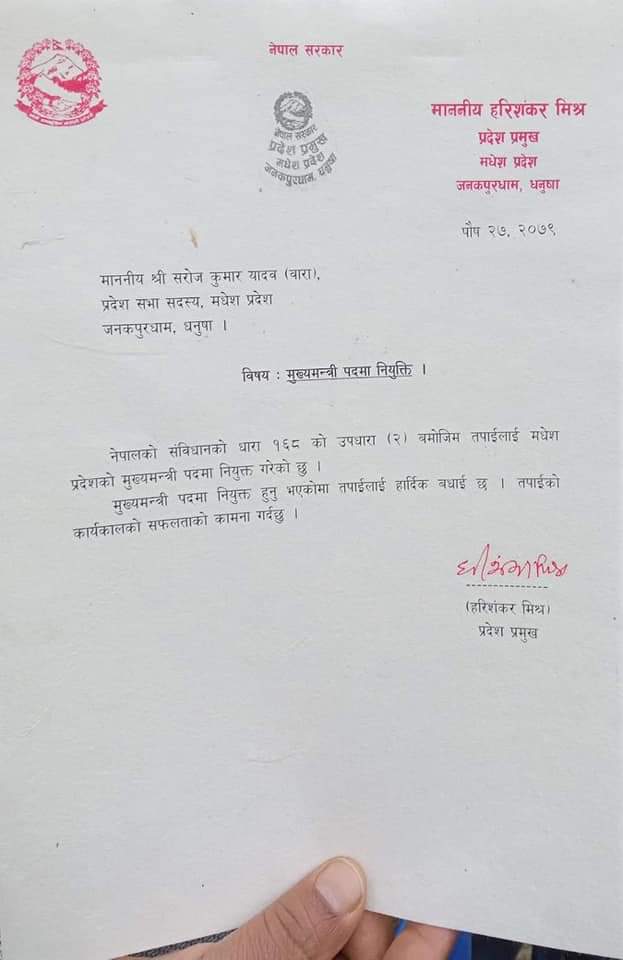 नेपाल सरकार
माननीय हरिशंकर मिश्र
प्रदेश प्रमुख
मधेश प्रदेश
जनकपुरधाम, धनुषा
नेपाल सरकार
प्रदेश प्रमुख
मधेश प्रदेश
जनकपुरधाम, धनुषा
पौष २७, २०७९
माननीय श्री सरोज कुमार यादव (वारा),
प्रदेश सभा सदस्य, मधेश प्रदेश
जनकपुरधाम, धनुषा ।
विषय : मुख्यमन्त्री पदमा नियुक्ति ।
नेपालको संविधानको धारा १६८ को उपधारा (२) बमोजिम तपाईलाई मधेश
प्रदेशको मुख्यमन्त्री पदमा नियुक्त गरेको छु ।
मुख्यमन्त्री पदमा नियुक्त हुनु भएकोमा तपाईलाई हार्दिक बधाई छ । तपाईको
कार्यकालको सफलताको कामना गर्दछु ।
(हरिशंकर मिश्र)
प्रदेश प्रमुख